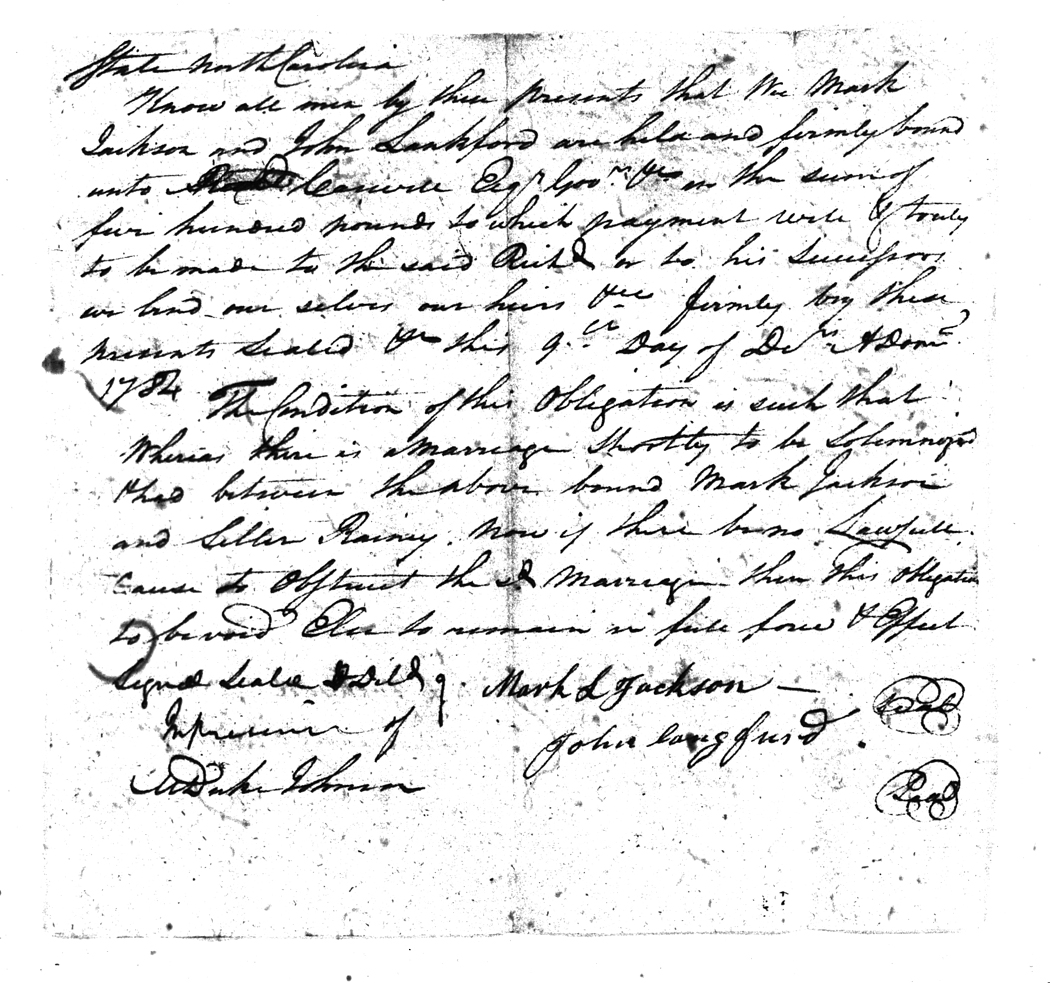 State North Carolina
Know all men by these presents that We Mark
Jackson and John Lankford are held and firmly bound
unto Caswell Esqr. Govr. &c in the sum of
five hundred pounds to which payment well & truly
to be made to the said Richd or to his Successors
we bind our selves our heirs &c firmly by these
presents Sealed &c this 9th Day of Dec ADom
1784
The Condition of this Obligation is such that
Whereas there is a Marriage Shortly to be Solemnized
& had between the above bound Mark Jackson
and Seller Rainey. Now if there be no Lawfull
Cause to Obstruct the sd Marriage then this Obligation
to be void Else to remain in full force & Effect
Signed Sealed & Deld
In presence of
Mark L Jackson
Seal
John Langfurd
Seal
ADuke Johnson